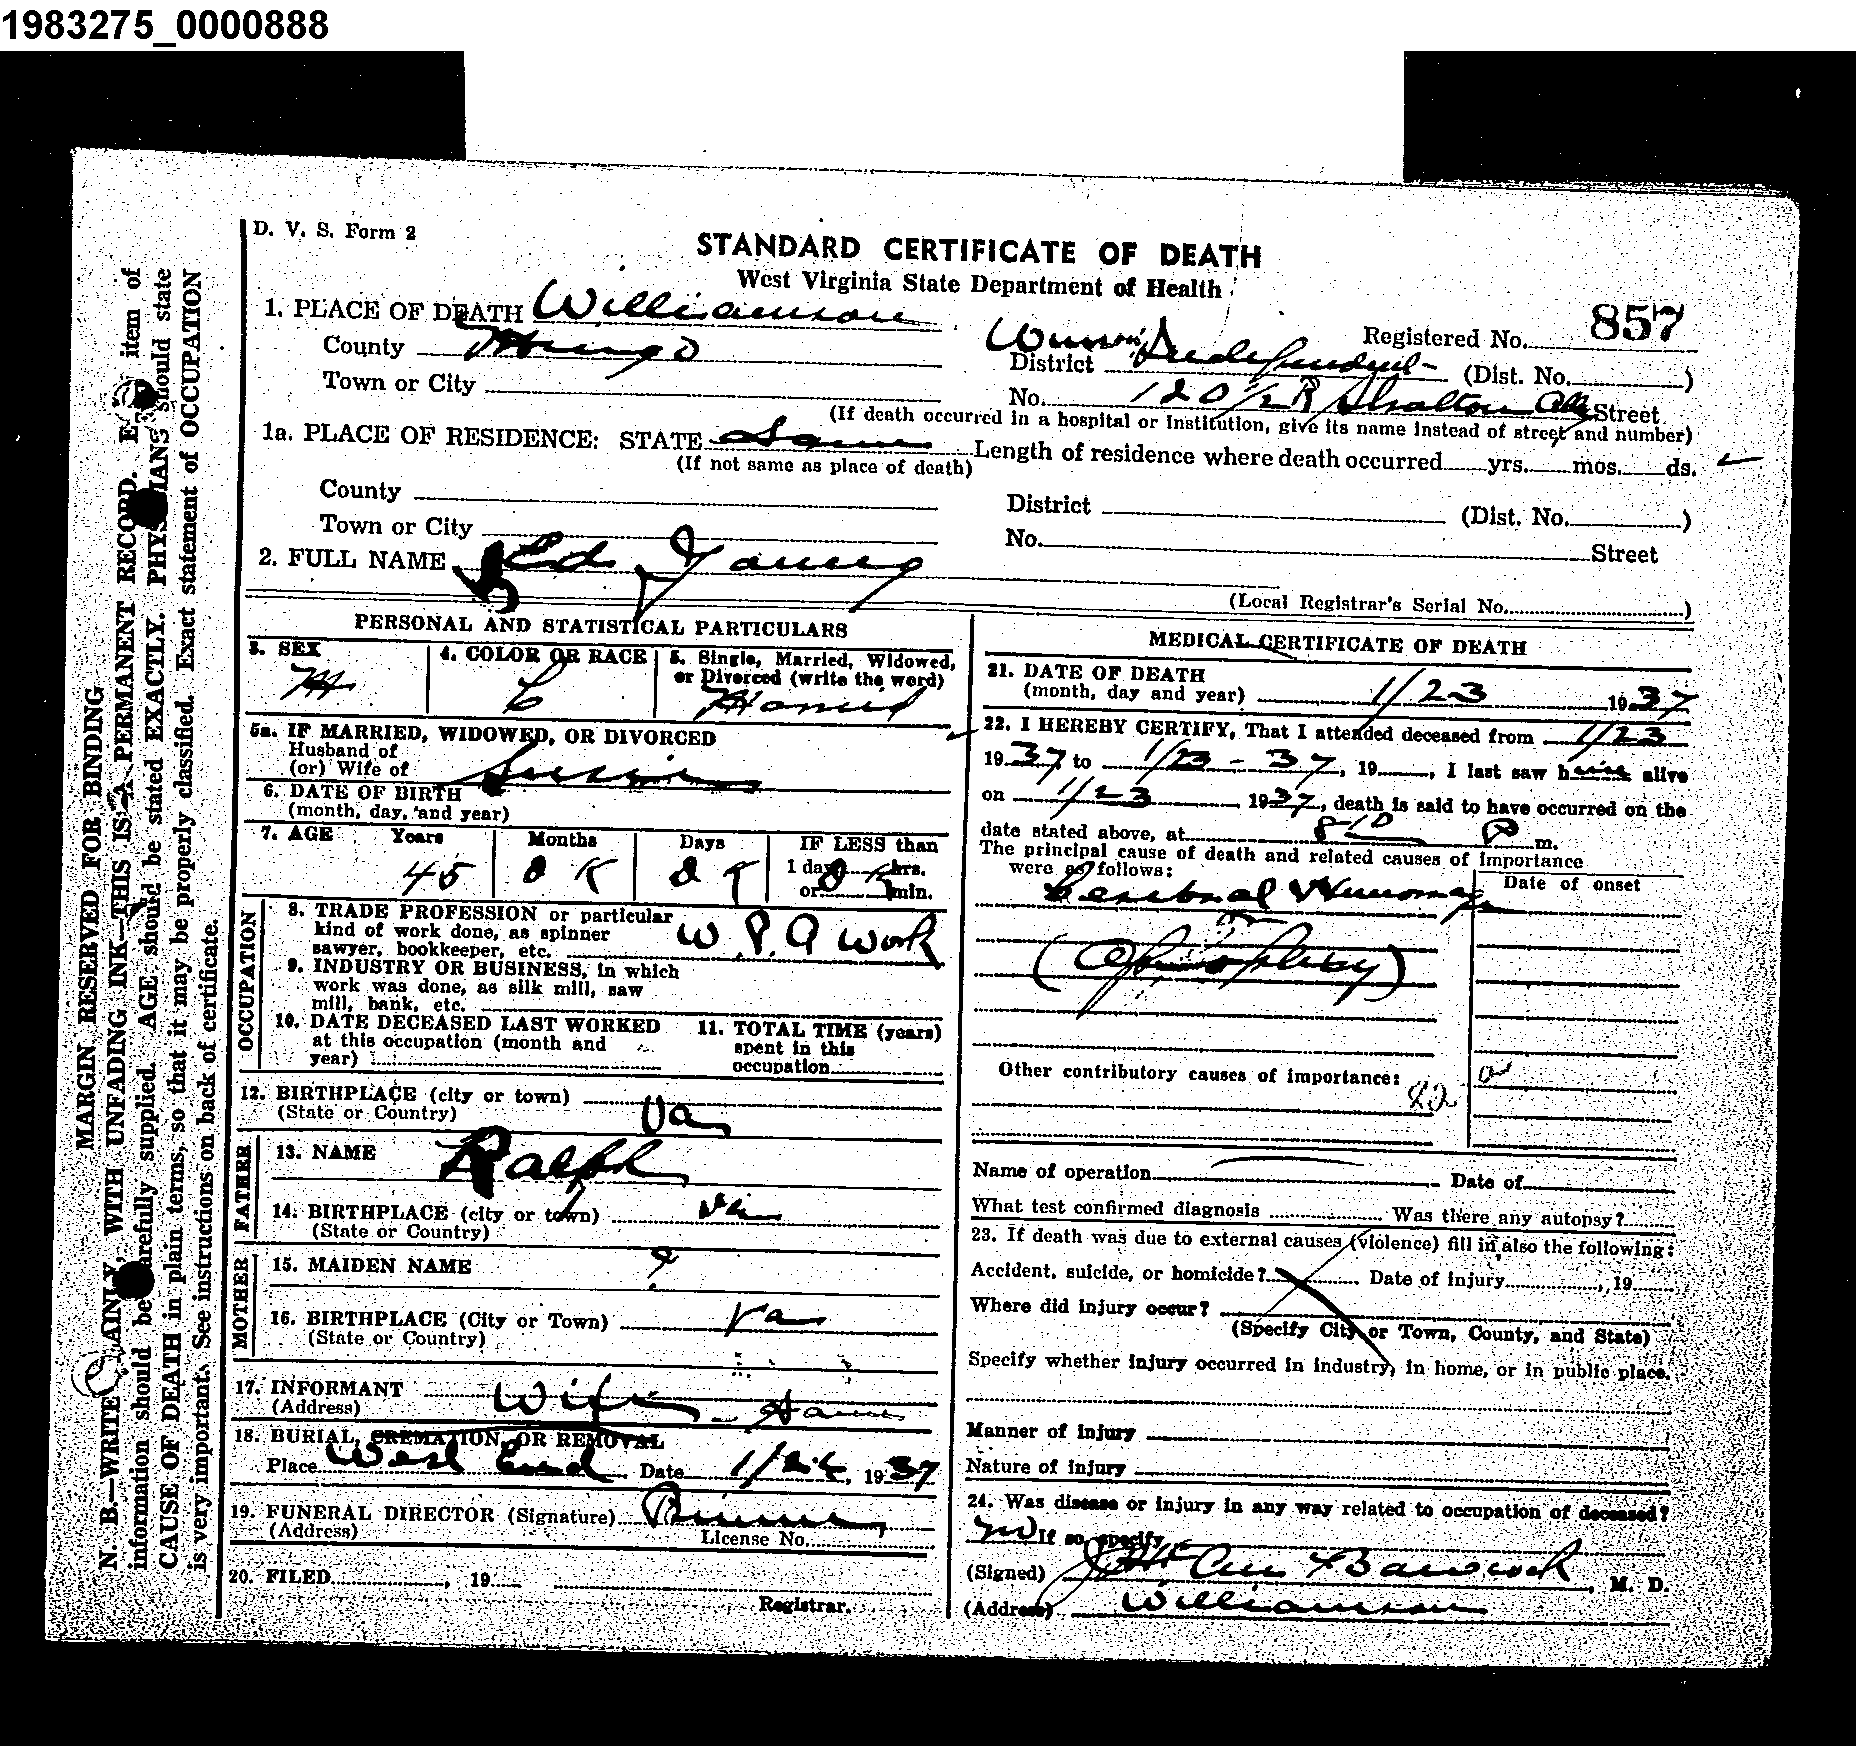 1983275_0000888
D. V. S. Form 2
STANDARD CERTIFICATE OF DEATH
West Virginia State Department of Health
1. PLACE OF DEATH Williamson
Registered No. 857
County Mingo
District Independent (Dist. No. )
Town or City
No. 120 1/2 R Street
(If death occurred in a hospital or institution, give its name instead of street and number)
1a. PLACE OF RESIDENCE: STATE Same
(If not same as place of death)
Length of residence where death occurred yrs. mos. ds.
County
District (Dist. No. )
Town or City
No. Street
2. FULL NAME Ed Young
(Local Registrar's Serial No. )
PERSONAL AND STATISTICAL PARTICULARS
3. SEX
M
4. COLOR OR RACE
C
5. Single, Married, Widowed,
or Divorced (write the word)
Married
5a. IF MARRIED, WIDOWED, OR DIVORCED
Husband of
(or) Wife of
6. DATE OF BIRTH
(month, day, and year)
7. AGE Years Months Days IF LESS than
1 day hrs.
or min.
45 D K D K D K
OCCUPATION
8. TRADE PROFESSION or particular
kind of work done, as spinner
sawyer, bookkeeper, etc. W.P.A work
9. INDUSTRY OR BUSINESS, in which
work was done, as silk mill, saw
mill, bank, etc.
10. DATE DECEASED LAST WORKED
at this occupation (month and
year)
11. TOTAL TIME (years)
spent in this
occupation
12. BIRTHPLACE (city or town)
(State or Country) Va
FATHER
13. NAME Ralph
14. BIRTHPLACE (city or town)
(State or Country)
MOTHER
15. MAIDEN NAME ?
16. BIRTHPLACE (City or Town) Va
(State or Country)
17. INFORMANT Wife - Same
(Address)
18. BURIAL, CREMATION, OR REMOVAL
Place West End Date 1/24, 1937
19. FUNERAL DIRECTOR (Signature)
(Address)
License No.
20. FILED , 19
Registrar.
MEDICAL CERTIFICATE OF DEATH
21. DATE OF DEATH
(month, day and year) 1/23 1937
22. I HEREBY CERTIFY, That I attended deceased from 1/23
1937 to 1/23 - 37, 19 , I last saw him alive
on 1/23 1937, death is said to have occurred on the
date stated above, at 8 10 P m.
The principal cause of death and related causes of importance
were as follows:
Date of onset
Cerebral
Other contributory causes of importance:
82 a
Name of operation Date of
What test confirmed diagnosis Was there any autopsy?
23. If death was due to external causes (violence) fill in also the following:
Accident, suicide, or homicide? Date of injury , 19
Where did injury occur?
(Specify City or Town, County, and State)
Specify whether injury occurred in industry, in home, or in public place.
Manner of injury
Nature of injury
24. Was disease or injury in any way related to occupation of deceased?
no If so, specify
(Signed) , M. D.
(Address) Williamson
MARGIN RESERVED FOR BINDING
N. B.—WRITE PLAINLY, WITH UNFADING INK—THIS IS A PERMANENT RECORD. item of
information should be carefully supplied. AGE should be stated EXACTLY. PHYSICIANS should state
CAUSE OF DEATH in plain terms, so that it may be properly classified. Exact statement of OCCUPATION
is very important. See instructions on back of certificate.